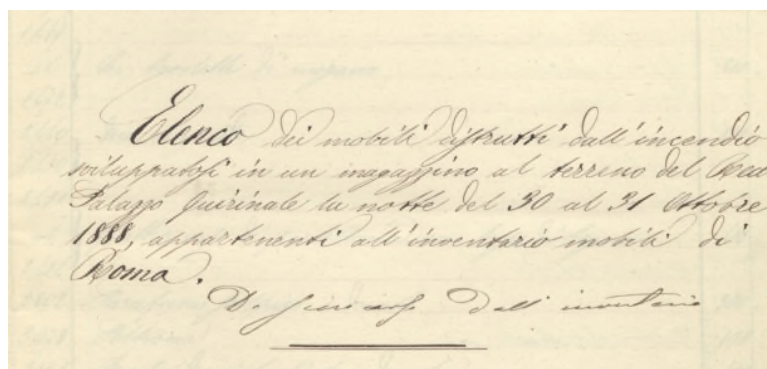 Elenco dei mobili distrutti dall'incendio
sviluppatosi in un magazzino al terreno del Real
Palazzo Quirinale la notte del 30 al 31 Ottobre
1888, appartenenti all'inventario mobili di
Roma.
Da dall'inventario